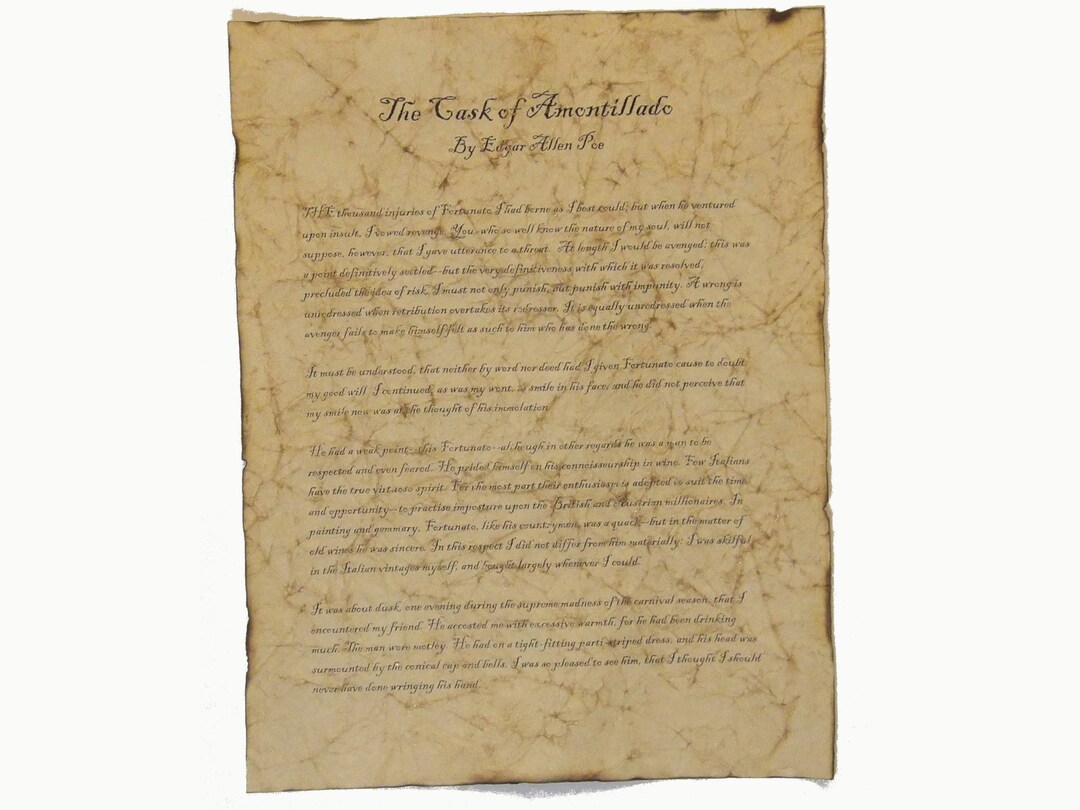 The Cask of Amontillado
By Edgar Allen Poe
THE thousand injuries of Fortunato I had borne as I best could; but when he ventured
upon insult, I vowed revenge. You, who so well know the nature of my soul, will not
suppose, however, that I gave utterance to a threat. At length I would be avenged; this was
a point definitively settled--but the very definitiveness with which it was resolved,
precluded the idea of risk. I must not only punish, but punish with impunity. A wrong is
unredressed when retribution overtakes its redresser. It is equally unredressed when the
avenger fails to make himself felt as such to him who has done the wrong.
It must be understood, that neither by word nor deed had I given Fortunato cause to doubt
my good will. I continued, as was my wont, to smile in his face, and he did not perceive that
my smile now was at the thought of his immolation.
He had a weak point--this Fortunato--although in other regards he was a man to be
respected and even feared. He prided himself on his connoisseurship in wine. Few Italians
have the true virtuoso spirit. For the most part their enthusiasm is adopted to suit the time
and opportunity--to practise imposture upon the British and Austrian millionaires. In
painting and gemmary, Fortunato, like his countrymen, was a quack--but in the matter of
old wines he was sincere. In this respect I did not differ from him materially: I was skilful
in the Italian vintages myself, and bought largely whenever I could.
It was about dusk, one evening during the supreme madness of the carnival season, that I
encountered my friend. He accosted me with excessive warmth, for he had been drinking
much. The man wore motley. He had on a tight-fitting parti-striped dress, and his head was
surmounted by the conical cap and bells. I was so pleased to see him, that I thought I should
never have done wringing his hand.